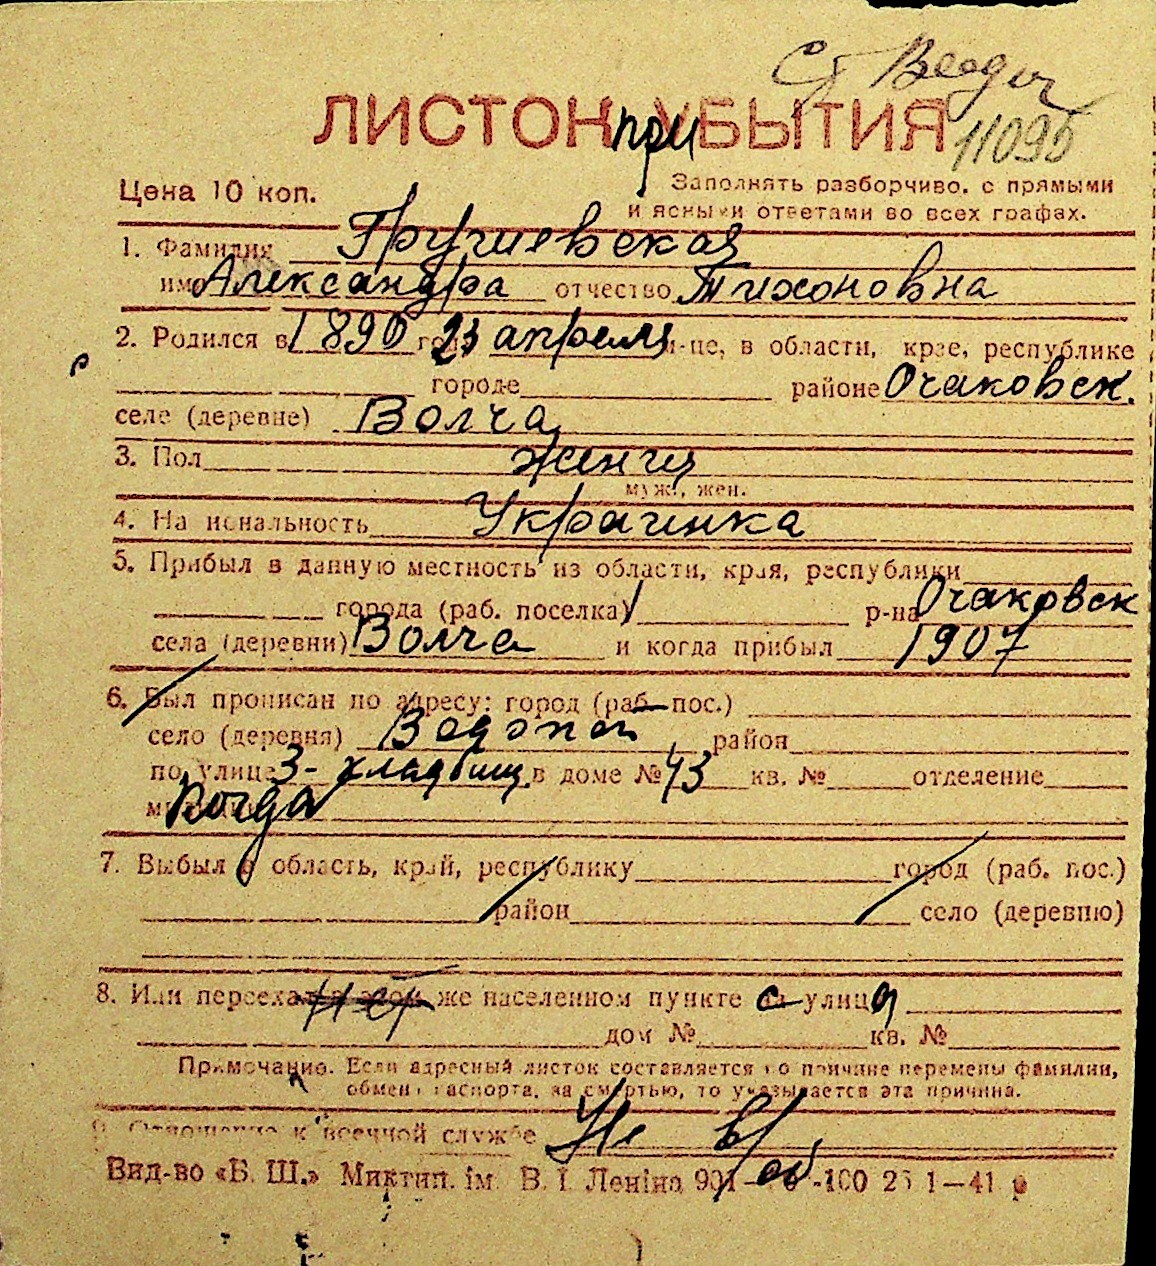 Ст
11095
ЛИСТОК при УБЫТИЯ
Цена 10 коп.
Заполнять разборчиво, с прямыми
и ясными ответами во всех графах.
1. Фамилия Грушевская
имя Александра отчество Тихоновна
2. Родился в 1890 году 23 апреля м-це, в области, крае, республике
городе районе Очаковск.
селе (деревне) Волча
3. Пол женщ
муж., жен.
4. Национальность Украинка
5. Прибыл в данную местность из области, края, республики
города (раб. поселка) р-на Очаковск
села (деревни) Волча и когда прибыл 1907
6. Был прописан по адресу: город (раб. пос.)
село (деревня) Водопой район
по улице 3-кладбищ. в доме № 43 кв. № отделение
Когда
7. Выбыл в область, край, республику город (раб. пос.)
район село (деревню)
8. Или переехал в этом же населенном пункте с улица
дом № кв. №
Примечание. Если адресный листок составляется по причине перемены фамилии,
обмена паспорта, за смертью, то указывается эта причина.
9. Отношение к военной службе Не в/об.
Вид-во «Б. Ш.» Миктип. ім. В. І. Леніна 901 -100 25 1—41 р